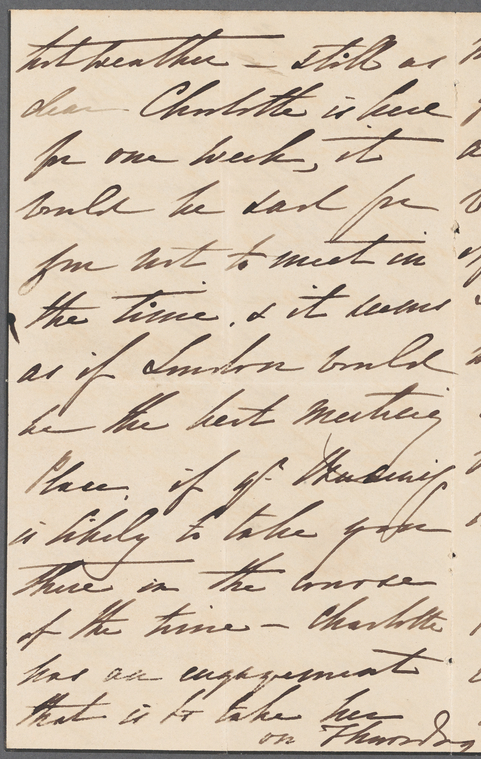 hot weather – still as
dear Charlotte is here
for one week, it
would be sad for
you not to meet in
the time, & it seems
as if London would
be the best meeting
Place, if yr.
is likely to take you
there in the course
of the time – Charlotte
has an engagement
that is to take her
on Thursday